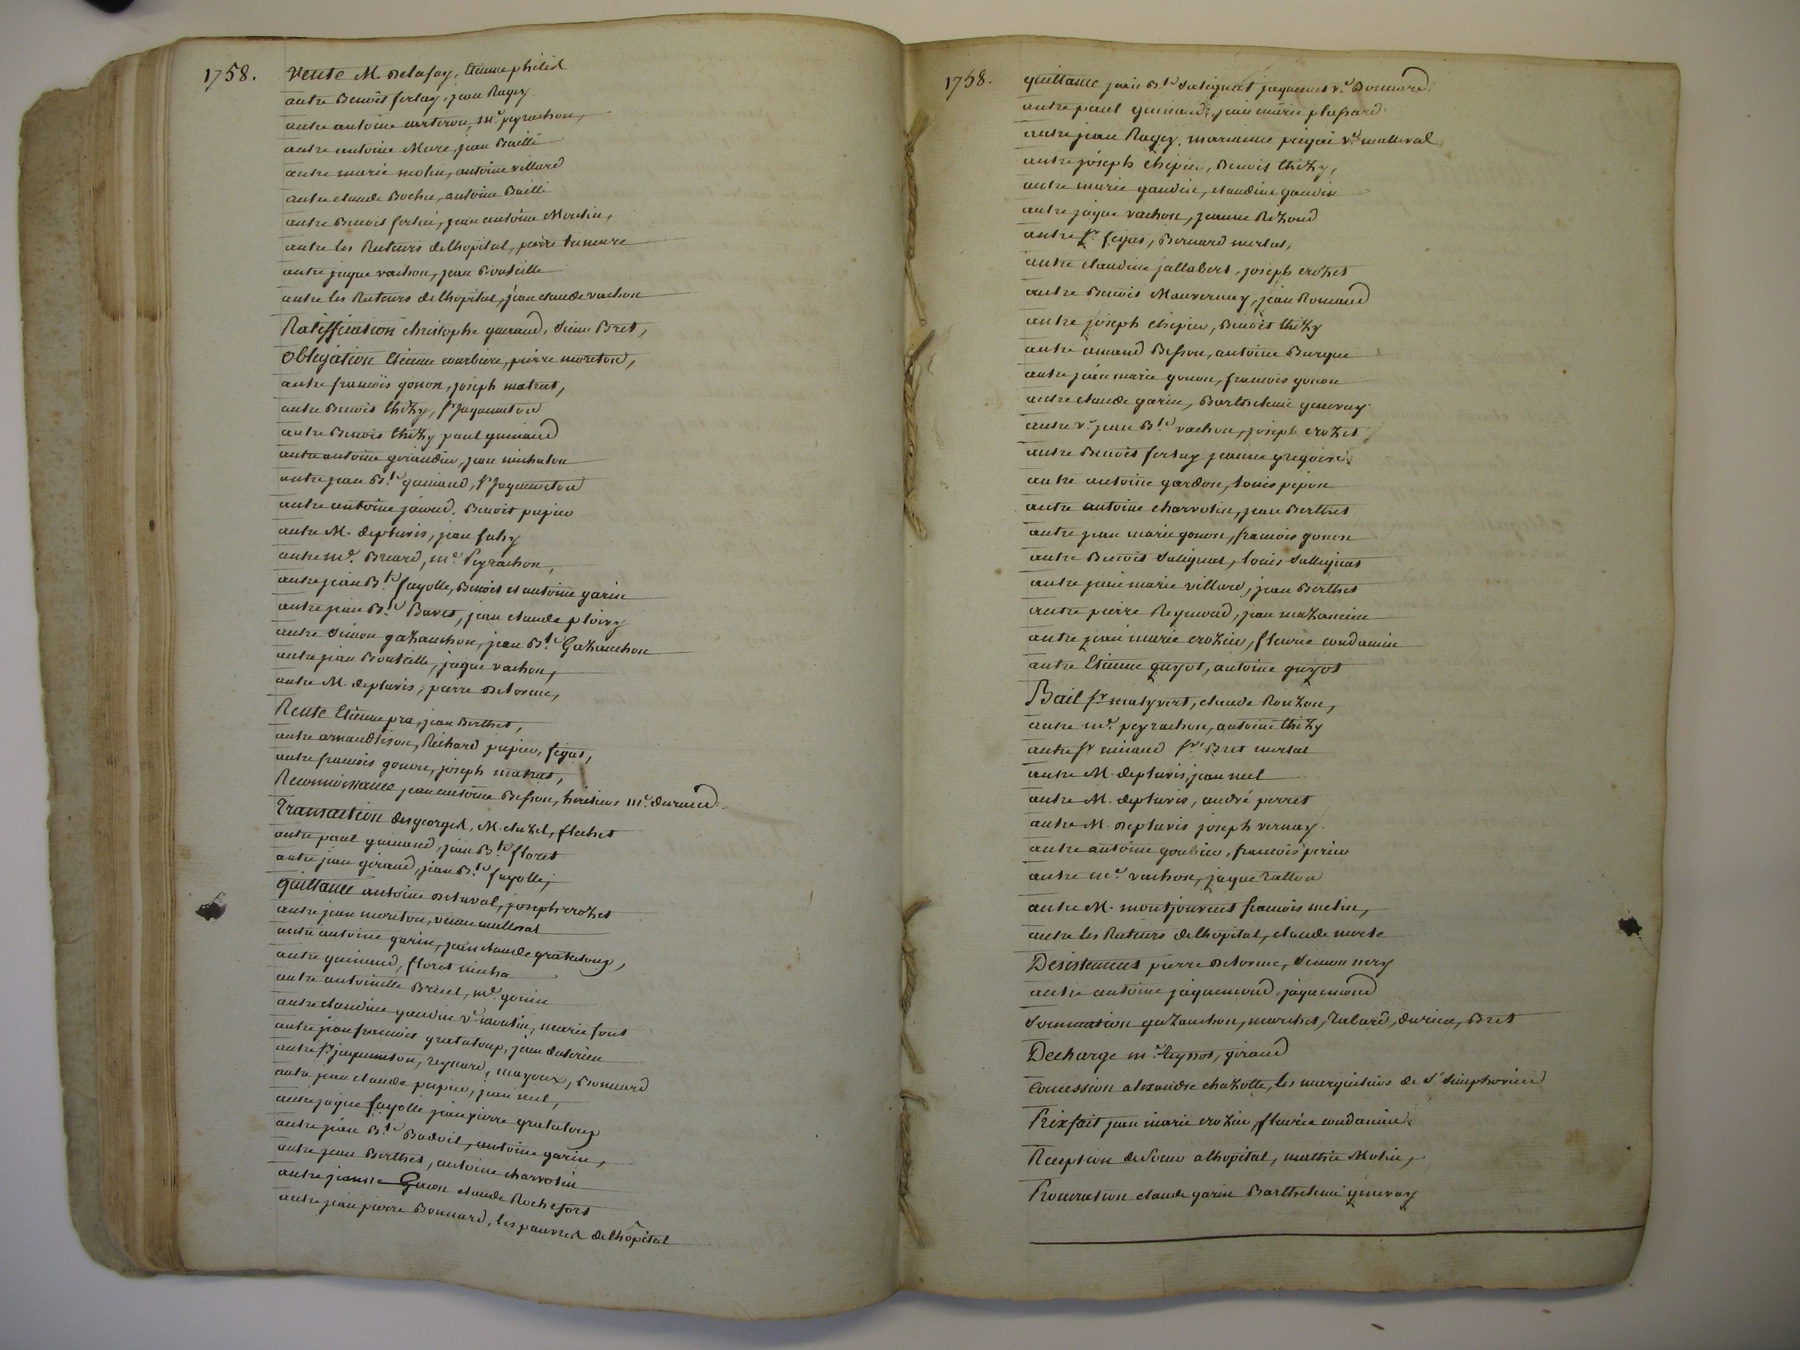 1758. Vente M. Delafay, Etienne philid
autre Benoit ferlay, jean Ragey
autre antoine carteron, m.e peyrachon,
autre antoine Mure, jean Bailli
autre marie molin, antoine villard
autre claude Boche, antoine Bailli
autre Benoit, jean antoine Moulin,
autre les Recteurs de lhopital, pierre
autre jaque vachon, jean Bouteille
autre les Recteurs de lhopital, jean claude vachon
Ratiffication christophe guinand, Bret,
Obligation Etienne courbiere, pierre moreton,
autre françois gonon, joseph matret,
autre Benoit thizy, sr jaqueneton
autre Benoit thizy paul guinand
autre antoine girandin, jean michalon
autre jean B.te guinand, sr jaqueneton
autre antoine, Benoit pupier
autre M. depluvis, jean fahy
autre m.e Breard, m.e Peyrachon,
autre jean B.te fayolle, Benoit et antoine garin
autre jean B.te Bavet, jean claude ploivy
autre Simon gazanchon, jean B.te Gazanchon
autre jean Bouteille, jaque vachon,
autre M. depluvis, pierre Delorme,
Rente Etienne pra, jean Berthet,
autre, Richard pupier, feyas,
autre françois gonon, joseph matret,
Reconnoissance jean antoine Besson, heritiers m.e durand
Transaction desgeorges, M. cluzel, flechet
autre paul guinand, jean B.te floret
autre jean giraud, jean B.te fayolle,
quittance antoine Deluval, joseph crozet
autre jean moreton, veuve malleval
autre antoine garin, jean claude grataloup,
autre guinand, floret micha
autre antoinette Bruel, m.e gonin
autre claudine gaudin v.e, marie font
autre jean francois grataloup, jean dutorieu
autre sr jaqueneton, reynard, mayoux, Bonnard
autre jean claude pupier, jean neel,
autre jaque fayolle jean pierre grataloup
autre jean B.te Badoil, antoine garin,
autre jean Berthet, antoine charvolin
autre jeanne Gonon claude Rochefort
autre jean pierre Bonnard, les pauvres de lhôpital
1758. quittance jean B.te Salignat jaquemet v.e Bonnard
autre paul guinand, jean marie plassard
autre jean Ragey, v.e malleval
autre joseph chipier, Benoit thizy,
autre marie gaudin, claudine gaudin
autre jaque vachon, jeanne Rezond
autre sr feyas, Bernard mertas,
autre claudine jallabert, joseph crozet
autre Benoit Mauvernay, jean Romand
autre joseph chipier, Benoit thizy
autre amand Besson, antoine Burque
autre jean marie gonon, francois gonon
autre claude garin, Barthelemi genevay
autre v.e jean B.te vachon, joseph crozet
autre Benoit ferlay jeanne gregoire
autre antoine gardon, louis pipon
autre antoine charvolin, jean Berthet
autre jean marie gonon, francois gonon
autre Benoit Salignat, louis Sallignat
autre jean marie villard, jean Berthet
autre pierre Reymond, jean mazancieu
autre jean marie crozier, fleurie condamin
autre Etienne guyot, antoine guyot
Bail sr malyvert, claude Ronzon,
autre m.e peyrachon, antoine thizy
autre sr sr Bret mertal
autre M. depluvis, jean neel
autre M. depluvis, andré perret
autre M. depluvis joseph vernay
autre antoine goubier, francois perier
autre m.e vachon, jaque Tallon
autre M. montjouvent francois melin,
autre les Recteurs de lhopital, claude morte
Desistances pierre Delorme, Simon nery
autre antoine jaquemond, jaquemond
Sommation gazanchon, marchet, Talard, durieu, Bret
Decharge m.e Teyssot, giraud
Concession alexandre chazotte, les marguiliers de St Simphorien
Prixfait jean marie crozier, fleurie condamin
Reception de Soeur a lhopital, mathie Molin,
Procuration claude garin Barthelemi genevay